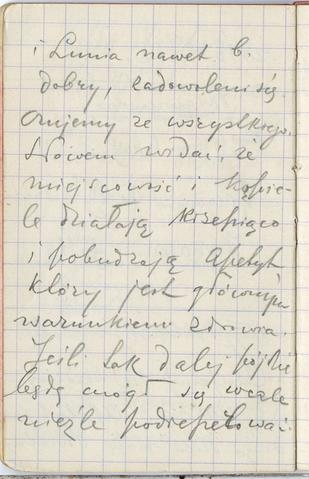 i Lunia nawet b.
dobry, zadowoleni się
czujemy ze wszystkiego.
Słowem widać, że
miejscowość i kąpie-
le działają krzepiąco
i pobudzają apetyt
który jest głównym
warunkiem zdrowia.
Jeśli tak dalej pójdzie
będę mógł się wcale
nieźle podreperować.